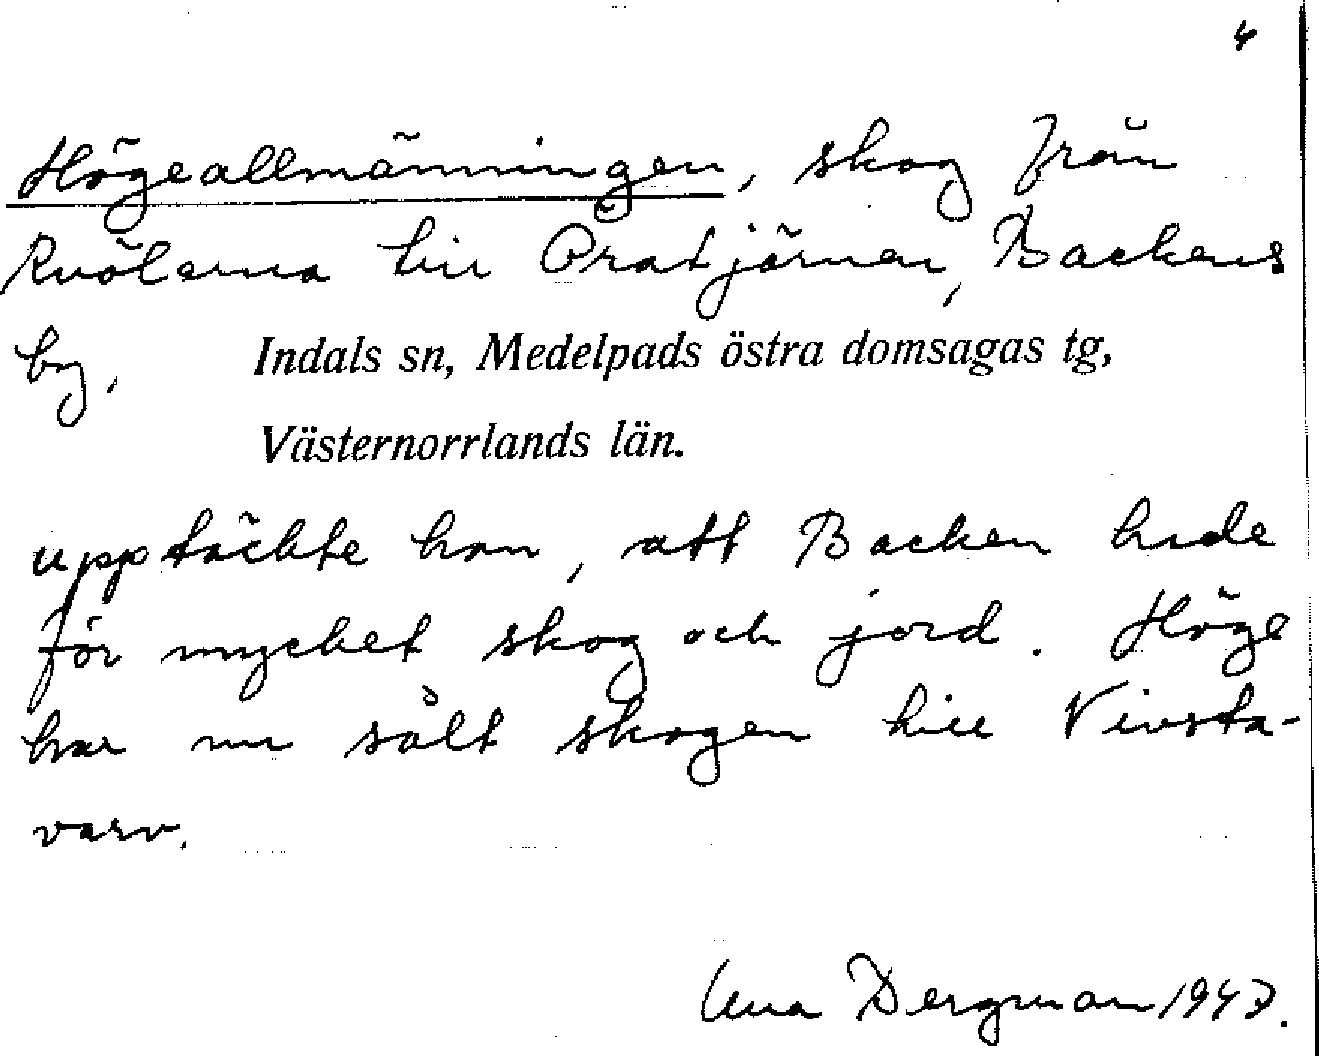 4
Högeallmänningen, skog från
Kvölarna till Öratjärnen, Backens
by, Indals sn, Medelpads östra domsagas tg,
Västernorrlands län.
upptäckte han, att Backen hade
för mycket skog och jord. Höge
har nu sålt skogen till Vivsta-
varv.
Bergman 1943.